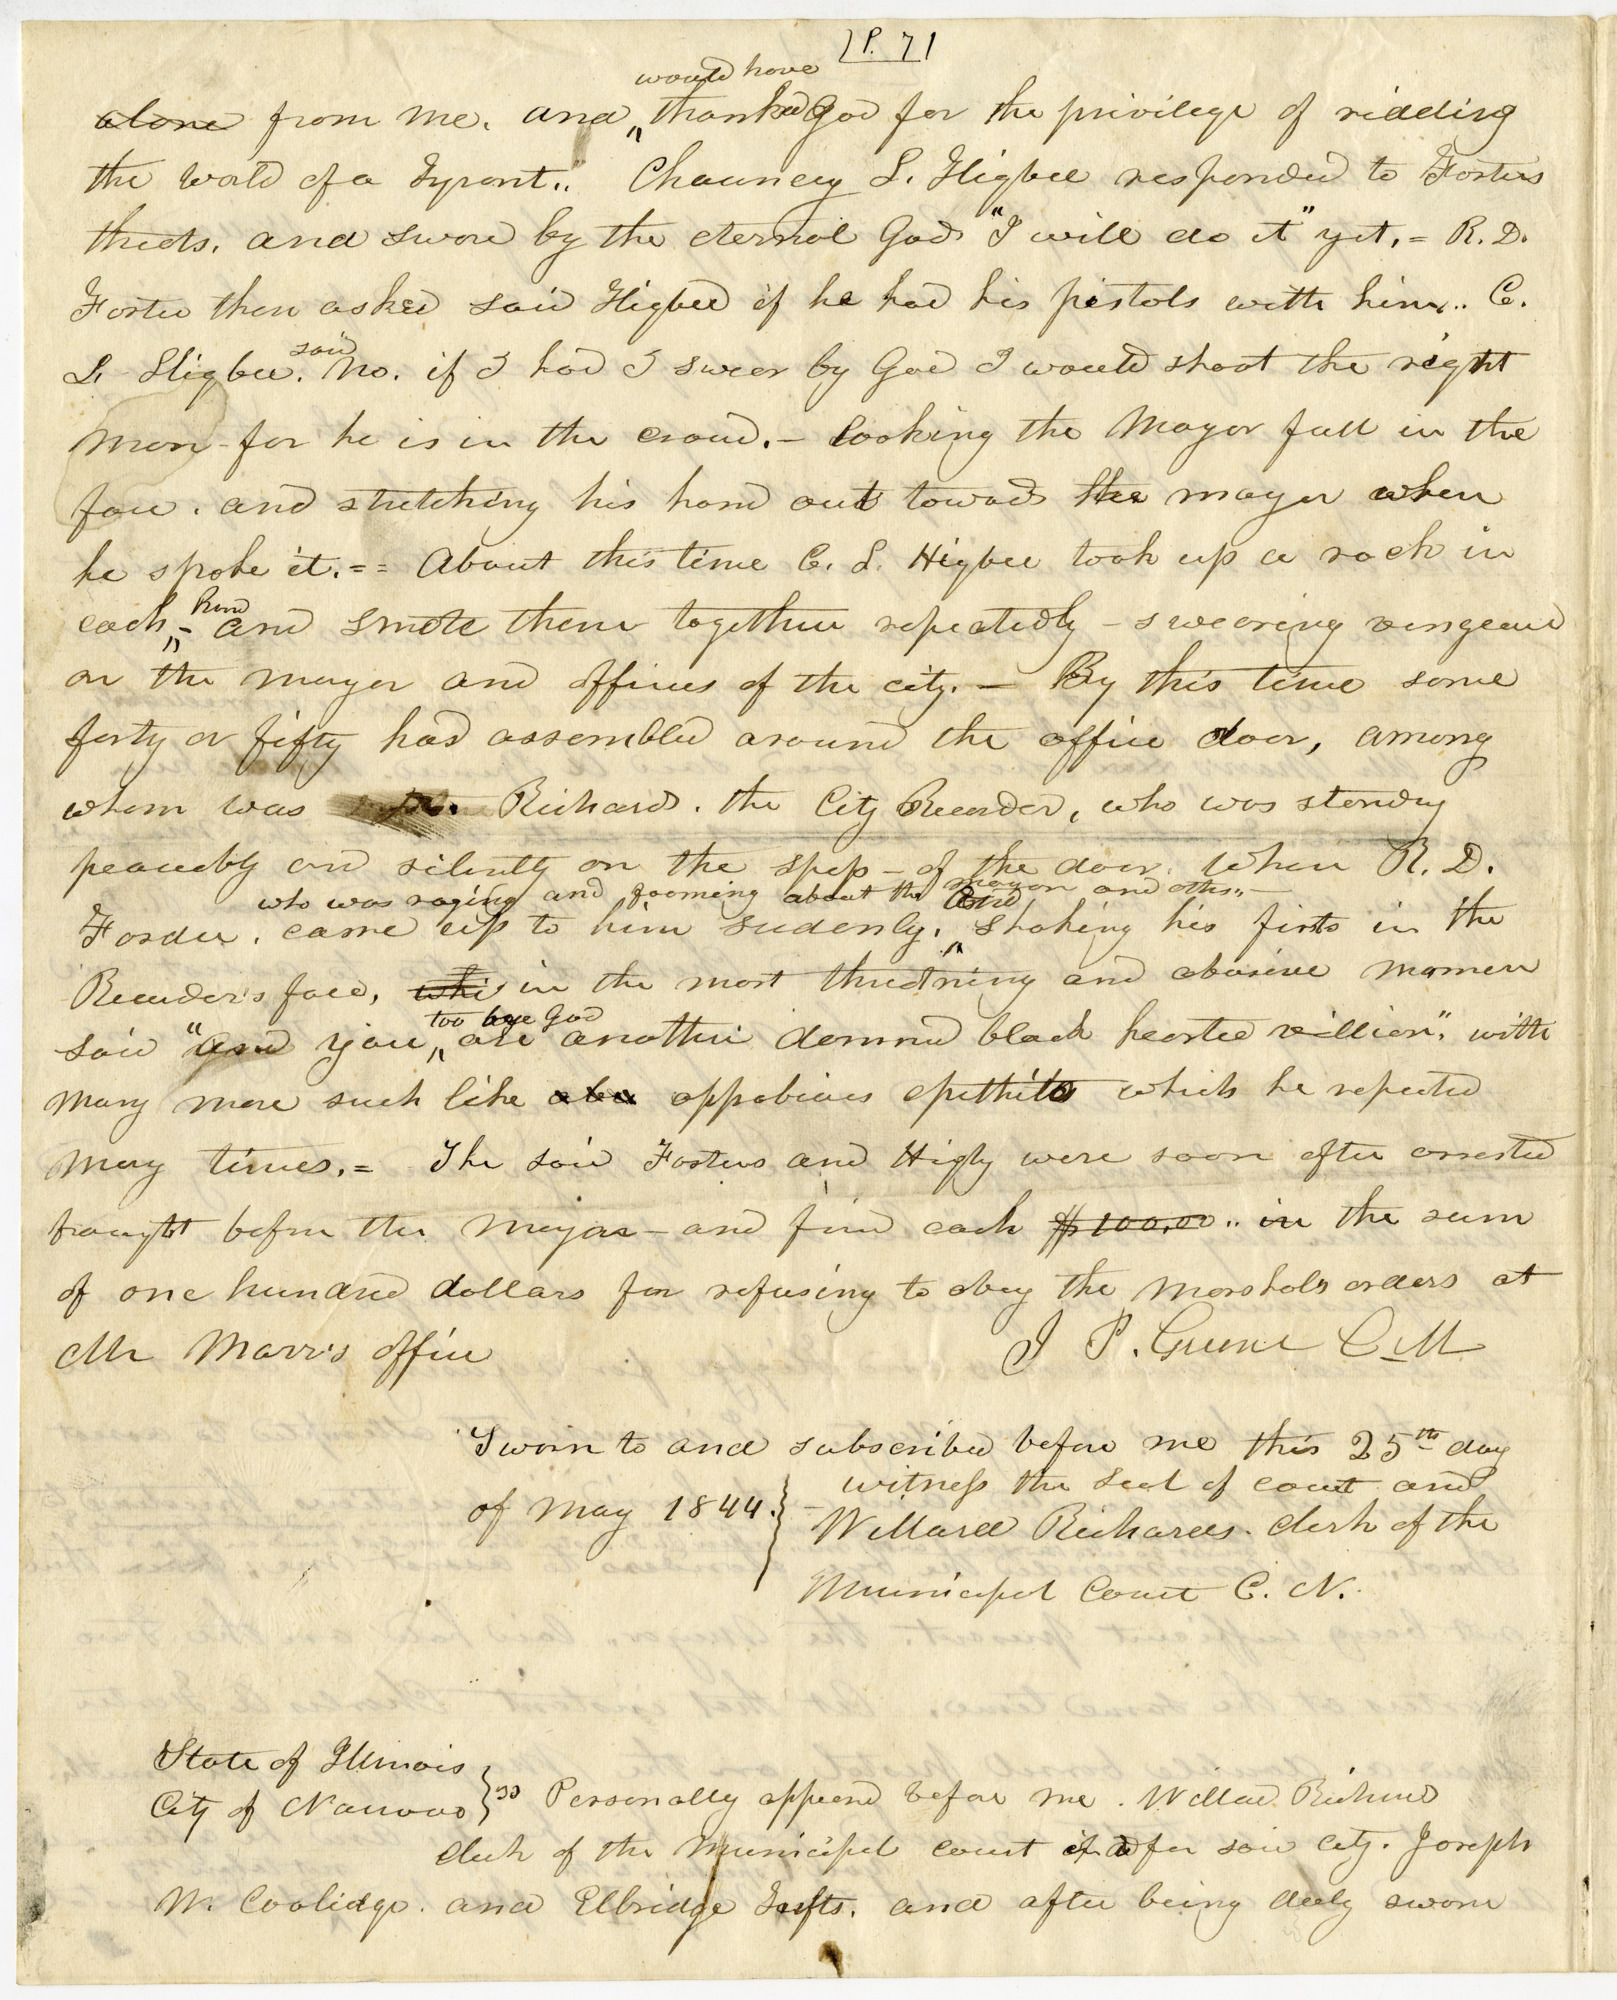 P. 7
would have
alone from me. and thanked God for the privilege of ridding
the world of a Tyrant.. Chauncey L. Higbee responded to Fosters
threts. and swore by the eternal God "I will do it" yet,= R. D.
Foster then asked said Higbee if he had his pistols with him.. C.
said
L. Higbee. No. if I had I swear by God I would shoot the right
man - for he is in the croud.- looking the Mayor full in the
face. and stretching his hand out towards the mayor when
he spoke it.== About this time C. L. Higbee took up a rock in
hand
each - and smote them together repeatedly - sweering vengeance
on the mayor and officers of the city. - By this time some
forty or fifty had assembled around the office door, among
whom was Richards. the City Recorder, who was standing
peaceably and silently on the steps - of the door. when R. D.
who was raging and foaming about the mayor and others..
Forster. came up to him sudenly. shaking his fists in the
Recorder's face, whi in the most thretning and abusive manner
too by God
said "and you are another damnd black hearted villian". with
many more such like abu opprobious epithits which he repeated
many times.= The said Fosters and Higby were soon after arrested
brought before the Mayor - and fined each $100,00.. in the sum
of one hundred dollars for refusing to obey the Marshals orders at
Mr Marr's office
J P. Greene C-M
Sworn to and subscribed before me this 25th day
witness the Seal of court and
of May 1844.} - Willard Richards. clerk of the
Municipal Court C. N.
State of Illinois
City of Nauvoo } ss Personally appeared before me. Willard Richards
clerk of the Municipal court for said city. Joseph
W. Coolidge. and Elbridge Tufts. and after being duly sworn